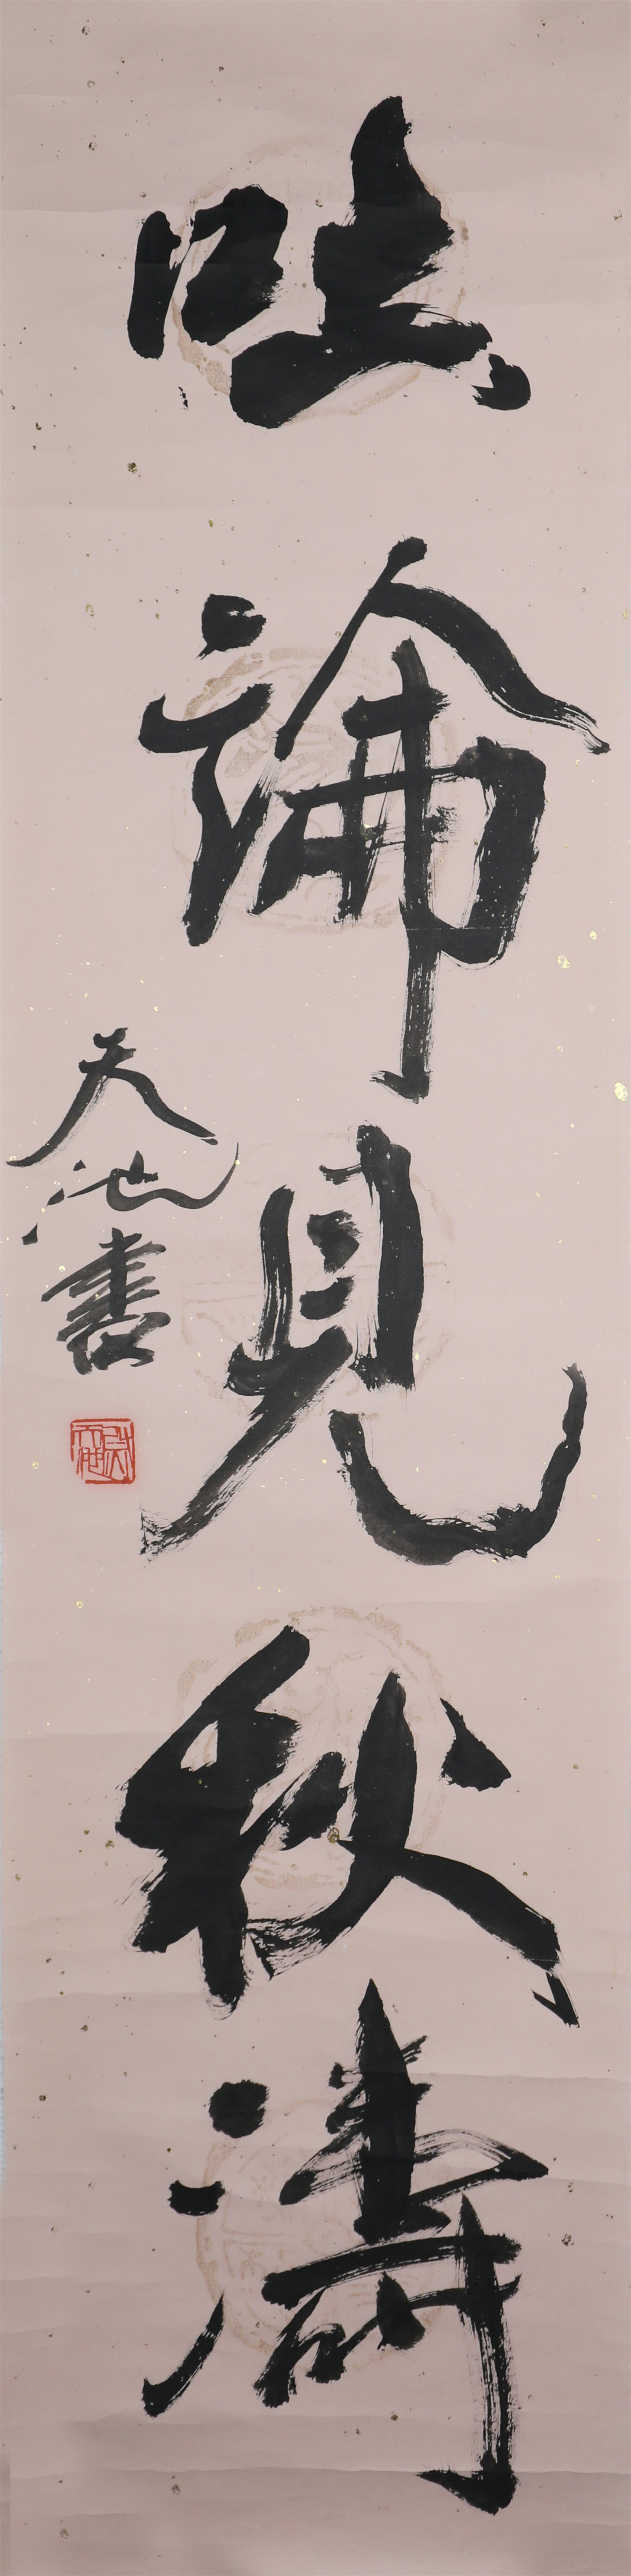 吐論見秋濤
天池書